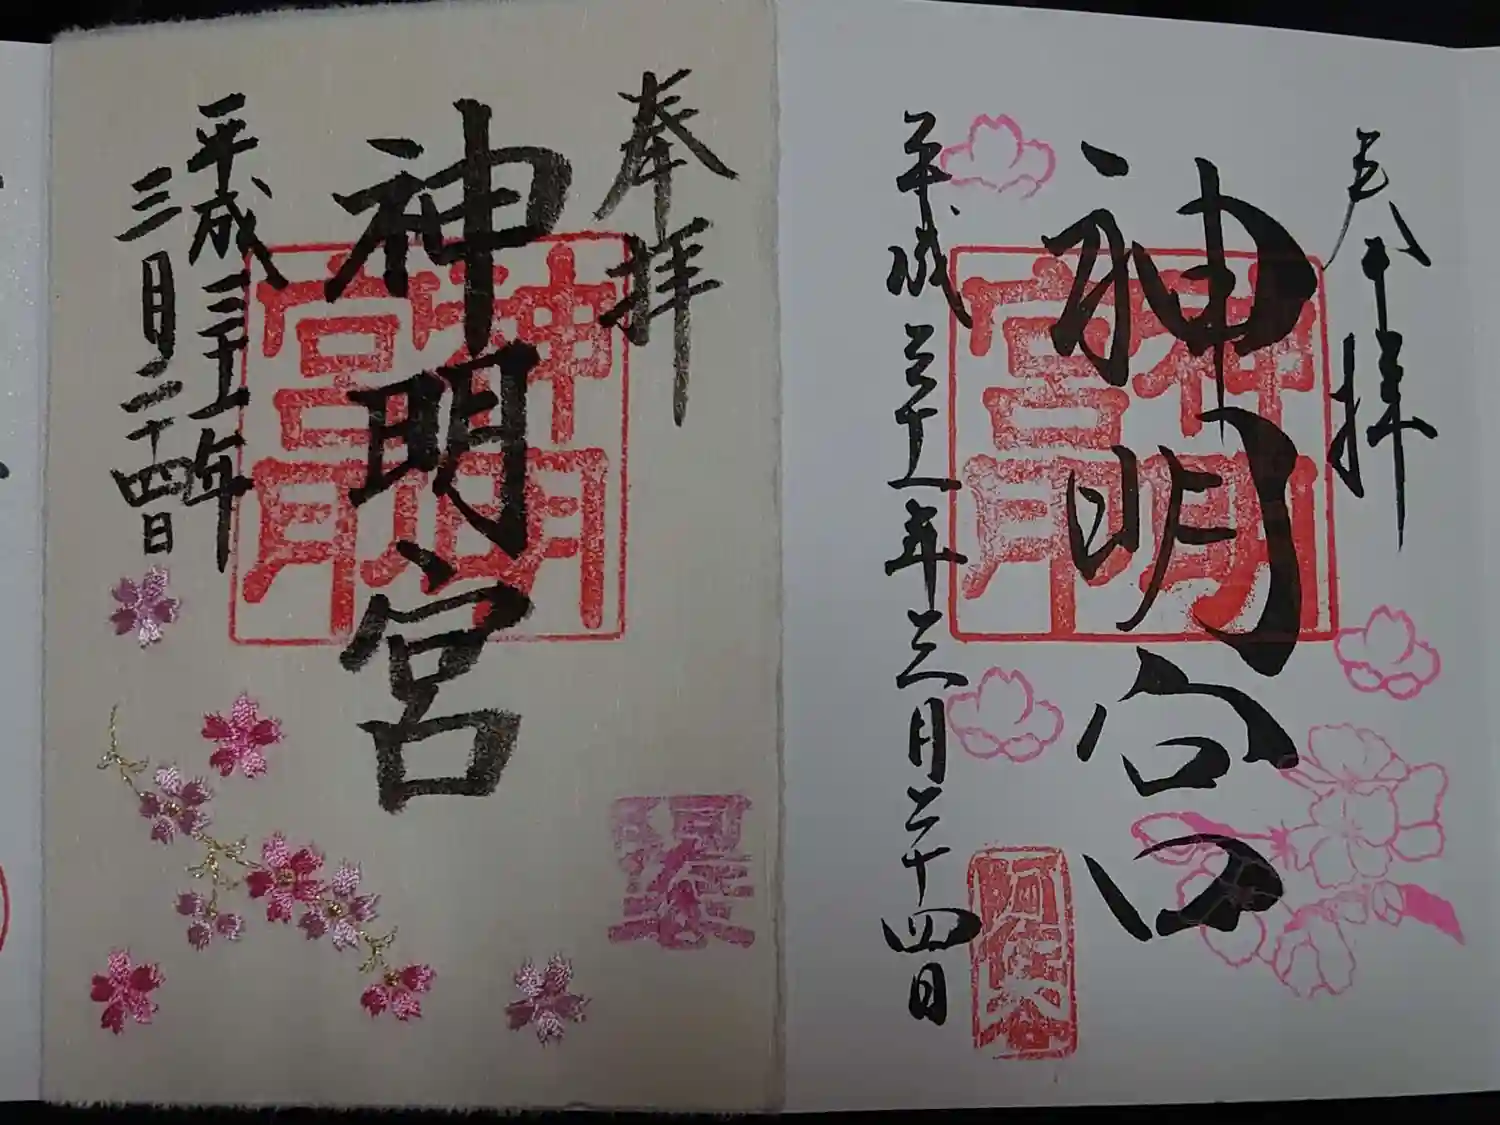 奉拝
神明宮
平成三十一年
三月二十四日
神明宮印
奉拝
神明宮
平成三十一年三月二十四日
神明宮印
阿佐ヶ谷